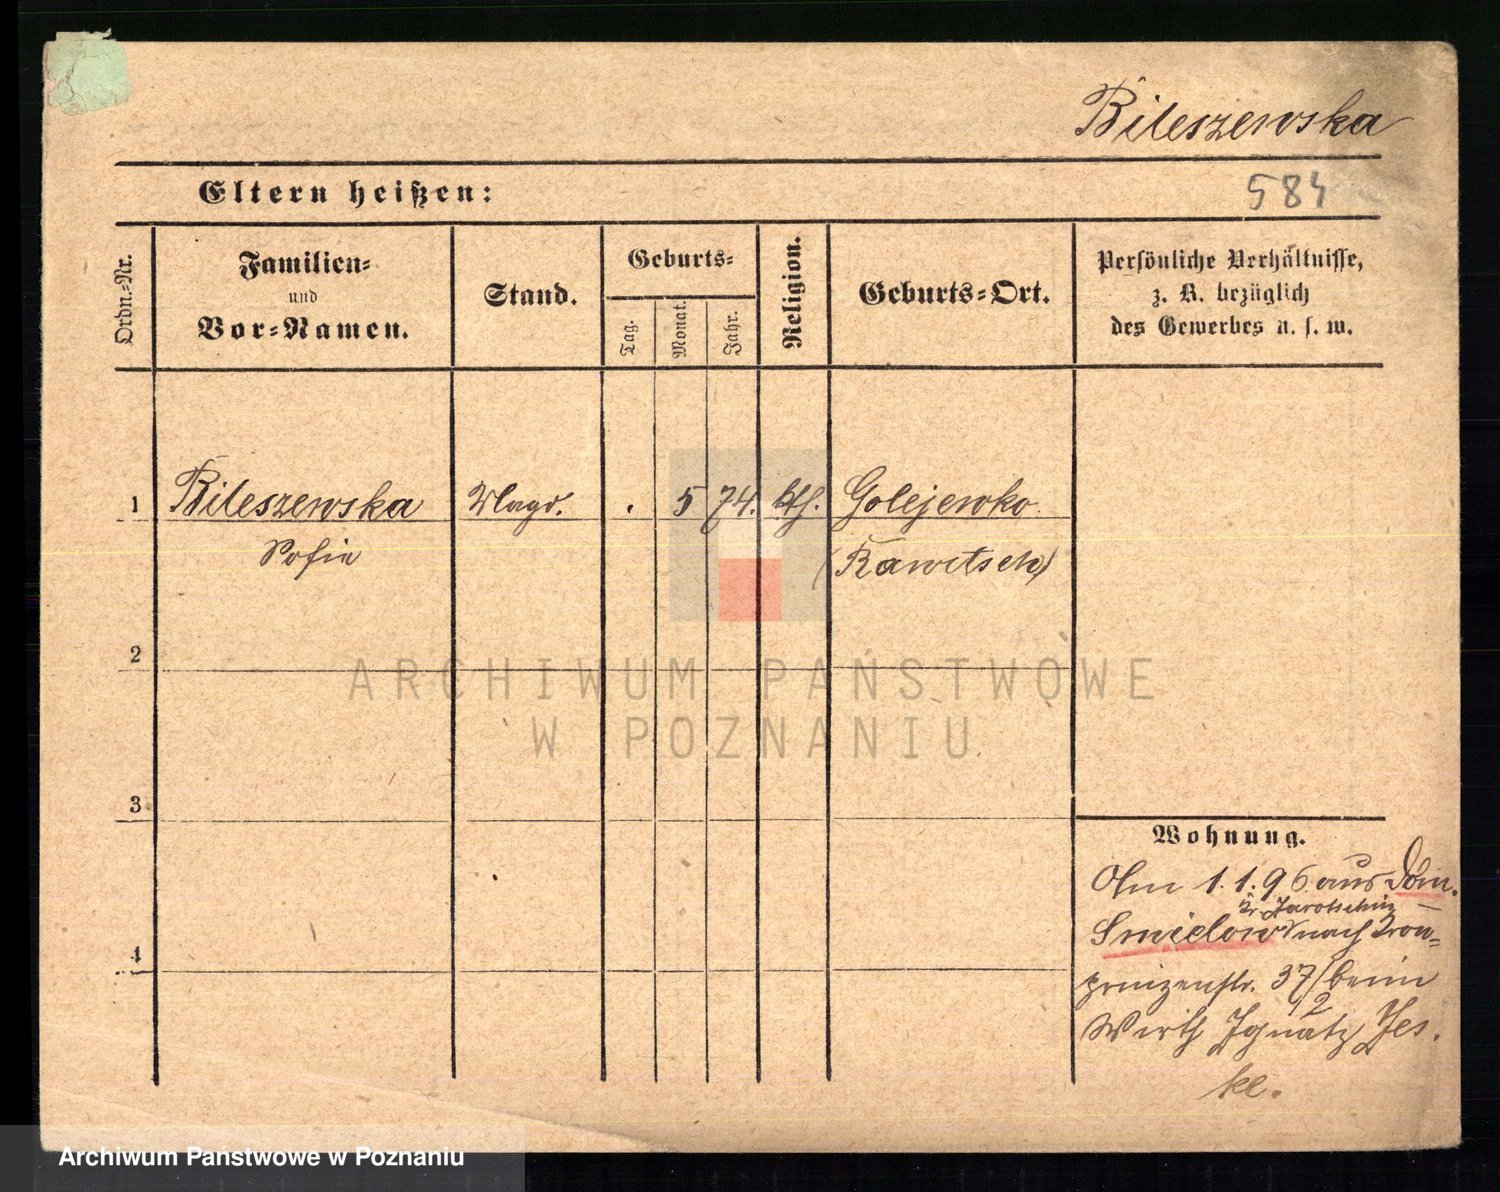 Bileszewska
Eltern heißen:
584
Ordn.-Nr.
Familien-
und
Vor-Namen.
Stand.
Geburts-
Tag.
Monat.
Jahr.
Religion.
Geburts-Ort.
Persönliche Verhältnisse,
z. B. bezüglich
des Gewerbes u. s. w.
1 Bileszewska Magd. . 5 74. kth. Golejewko
Sofie (Rawitsch)
2
3
4
Wohnung.
Am 1.1.96. aus Dom.
Kr Jarotschin
Smielow nach Kron-
prinzenstr. 37/2 beim
Wirth Ignatz Jes-
ke.
ARCHIWUM PAŃSTWOWE
W POZNANIU
Archiwum Państwowe w Poznaniu